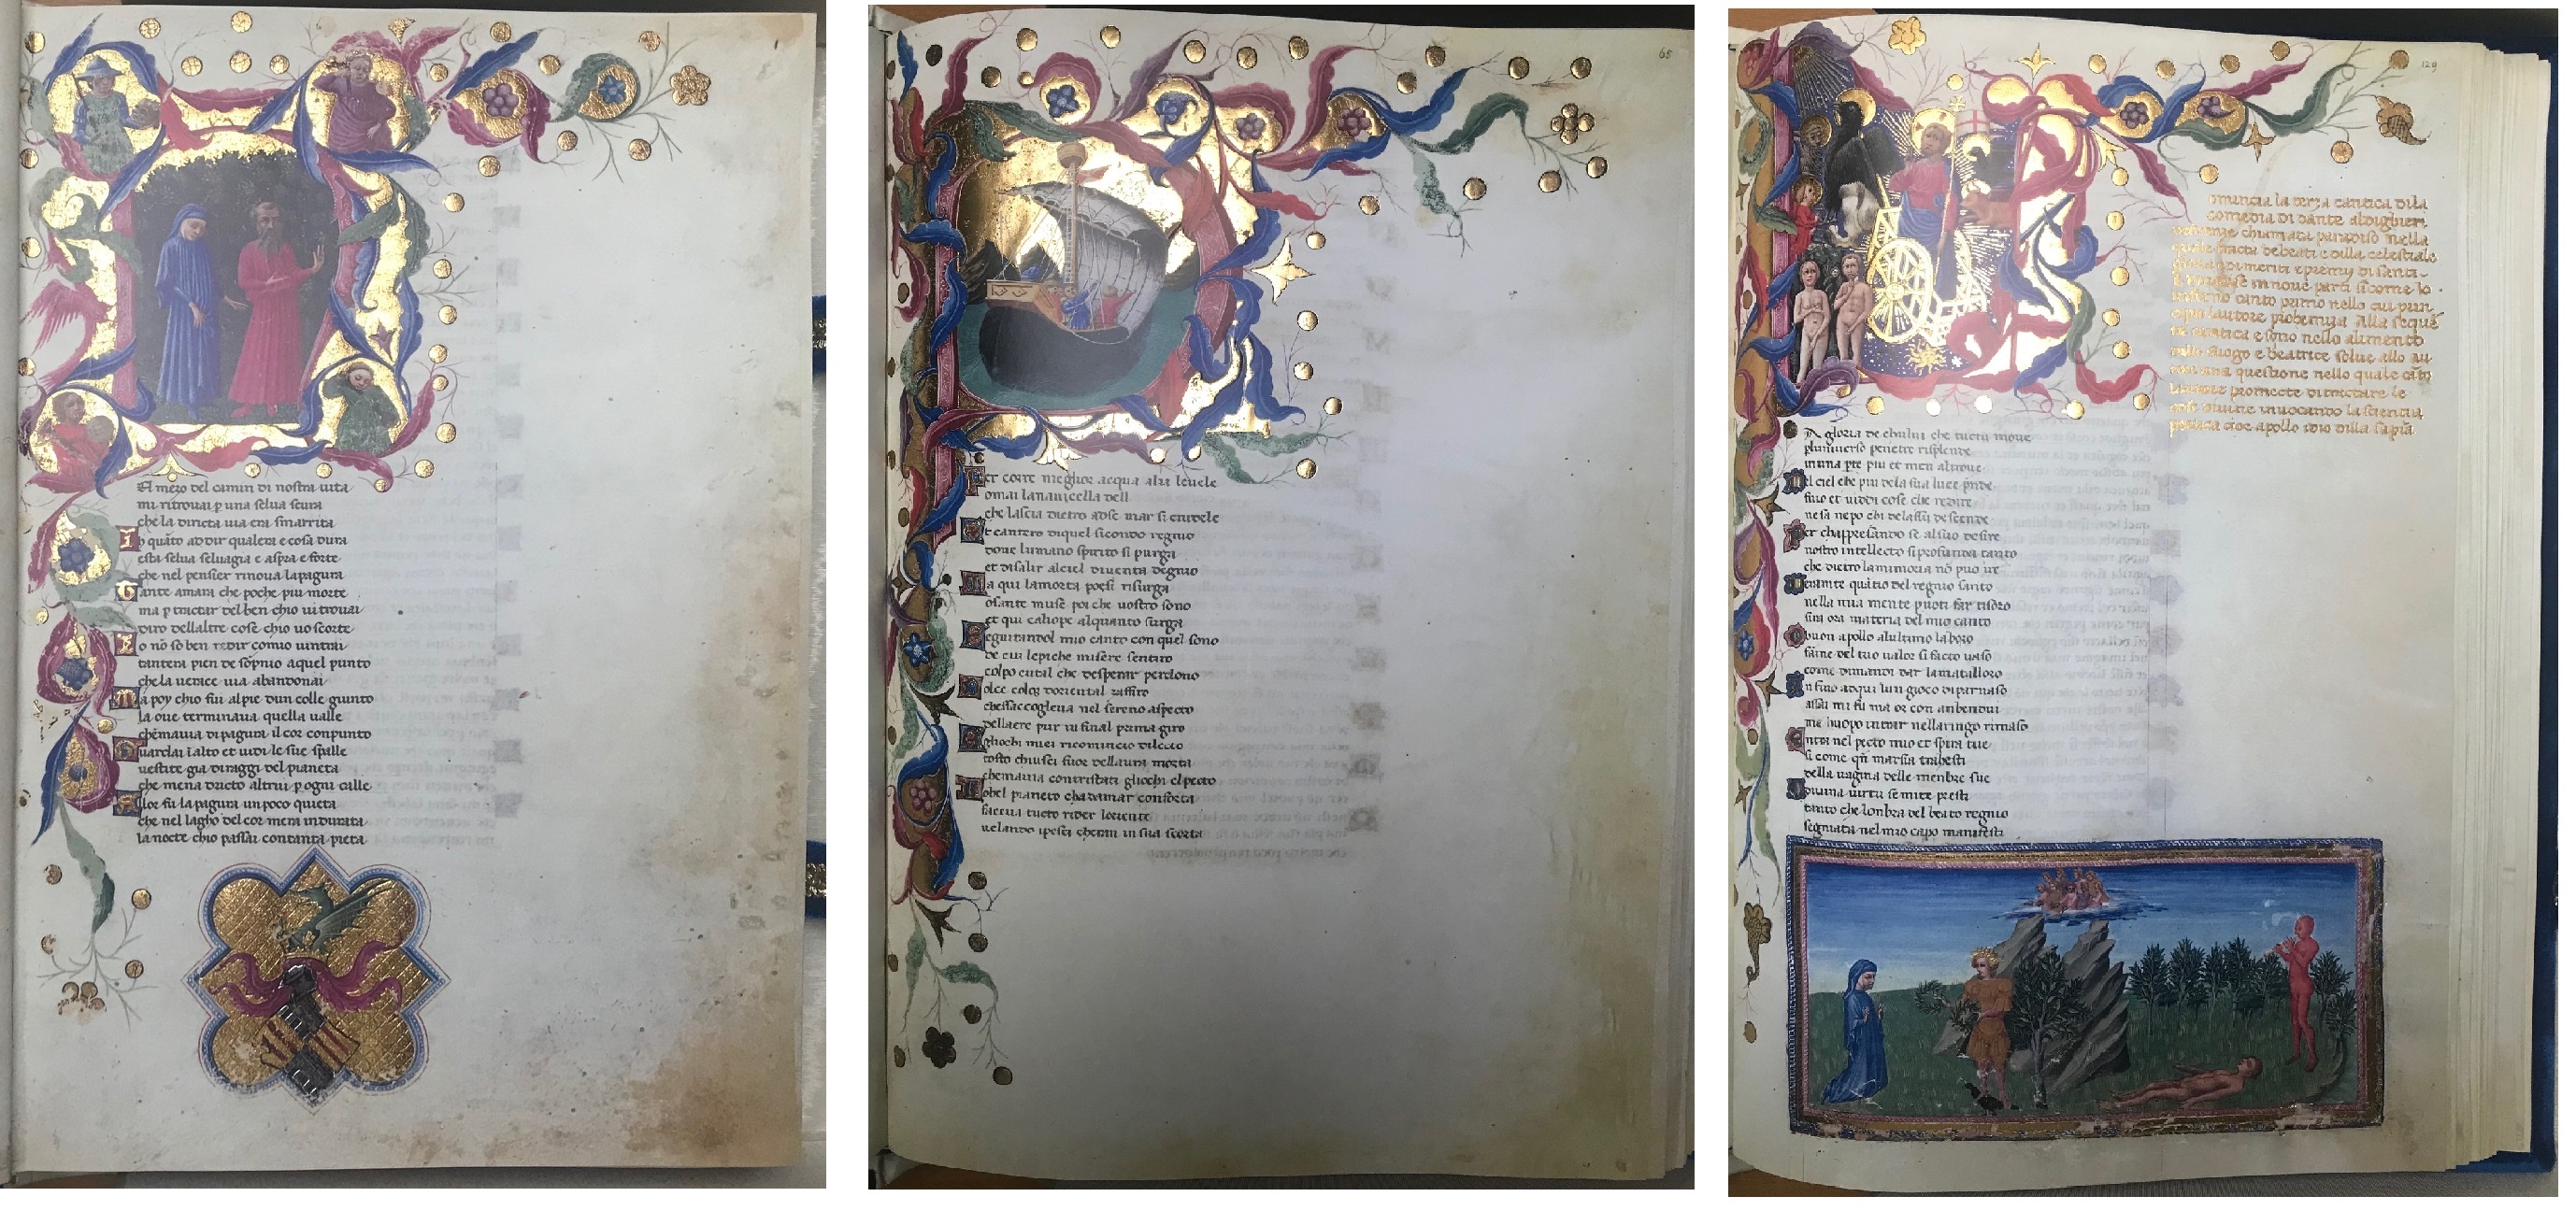 El mezo del camin di nostra uita
mi ritrouai p una selua scura
che la diricta uia era smarrita
I o quãto ad dir qualera e cosa dura
esta selua seluagia e aspra e forte
che nel pensier rinoua la pagura
Tante amara che poche piu morte
ma p tractar del ben chio ui trouai
diro dellaltre cose chio uo scorte
Io nõ so ben redir comio uintrai
tantera pien de sopnio aquel punto
che la uerace uia abandonai
Ma poy chio fui alpie dun colle giunto
la oue terminaua quella ualle
che mauia di pagura il cor conpunto
Guardai ialto et uidi le sue spalle
uestite gia di raggi del pianeta
che mena dricto altrui p ogni calle
Alor fu la pagura un poco quieta
che nel lagho del cor mera indurata
la nocte chio passai contanta pieta
65
Per corre meglior acqua alza leuele
omai la nauicella dell
che lascia dietro adse mar si crudele
Et cantero di quel sicondo regnio
doue lumano spirito si purga
et di salir alciel diuenta degnio
Ma qui lamorta poesi risurga
o sante muse poi che uostro sono
et qui caliope alquanto surga
Seguitandol mio canto con quel sono
de cui le piche misere sentiro
colpo cutal che desperar perdono
Dolce color doriental zaffiro
che saccoglieua nel sereno aspecto
dellaere pur in final prima giro
Agliochi miei ricomincio dilecto
tosto chiusci fuor dellaura morta
che mauia contristati gliochi el pecto
Lobel pianeto chadamar conforta
faceua tucto rider loriente
uelando ipesci cherin in sua scorta
129
omincia la terza cantica dila
comedia di dante aldighieri
chiamata paradiso nella
quale tracta de beati e dilla celestiale
gloria di meriti e premy di santi
in noue parti si come lo
inferno canto primo nello cui prin
cipio lautore prohemiza Alla seque
te cantica e sono nello alimento
dello fuogo e beatrice solue allo au
tore una questione nello quale cãto
lautore promecte di tractare le
cose diuine inuocando la scientia
poetica cioe apollo idio dilla sapia
La gloria de cholui che tucto moue
p luniuerso penetre risplende
in una pte piu et men altroue
Nel ciel che piu dela sua luce prende
fuio et uiddi cose che redire
ne sa ne po chi delassu descende
Per chappressando se al suo desire
nostro intellecto si profunda tanto
che dietro la mimoria nõ puo ire
Veramte quãtio del regnio santo
nella mia mente puoti far tisoro
sira ora materia del mio canto
O buon apollo alultimo laboro
famme del tuo ualor si facto uaso
come dimandi dar lamato alloro
In fino ad qui lun giogo di parnaso
assai mi fu ma or con anbendui
me huopo intrar nellaringo rimaso
Entra nel pecto mio et spira tue
si come qñ marsia trahesti
della uagina delle menbre sue
O diuina uirtu se mi te presti
tanto che lonbra del beato regnio
segniata nel mio capo manifesti